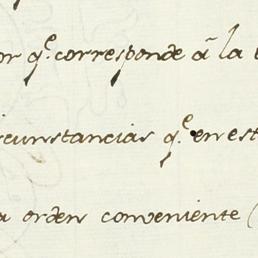 or q.e corresponde á la
cunstancias q.e en est
a orden conveniente (